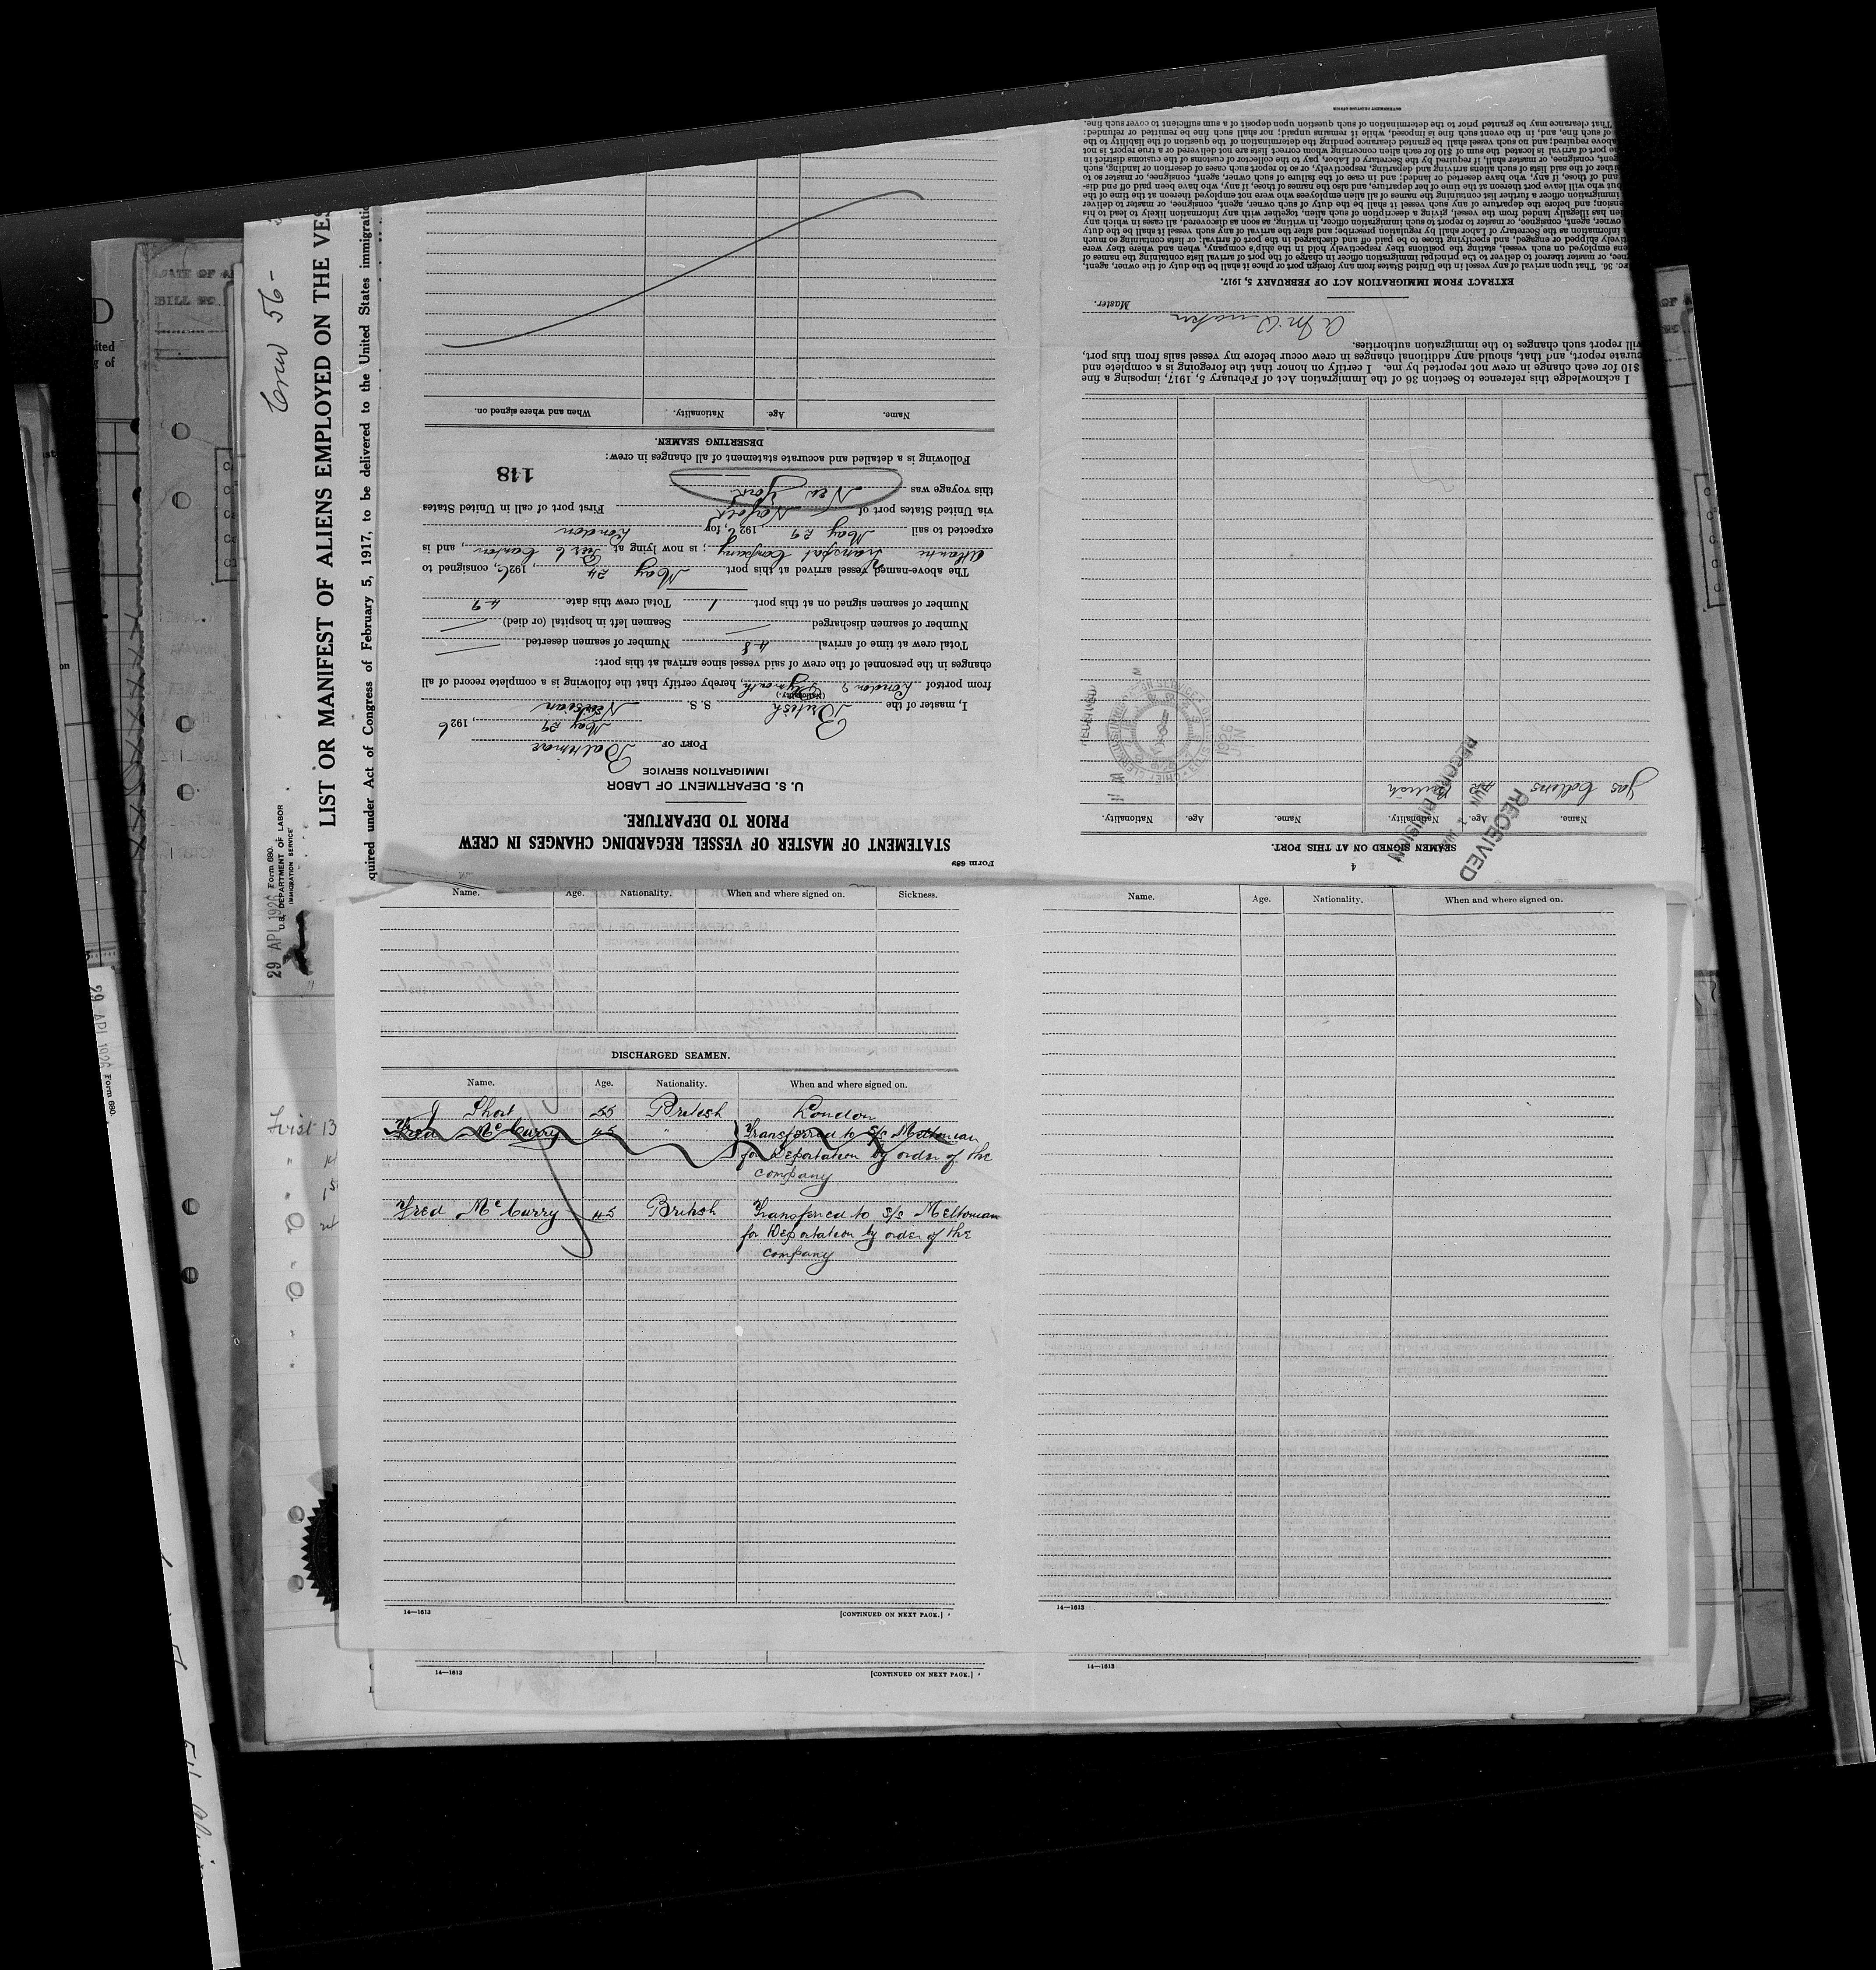 Crew 56-
LIST OR MANIFEST OF ALIENS EMPLOYED ON THE VES
quired under Act of Congress of February 5, 1917, to be delivered to the United States immigratio
Form 680.
U.S. DEPARTMENT OF LABOR
IMMIGRATION SERVICE
Form 689
STATEMENT OF MASTER OF VESSEL REGARDING CHANGES IN CREW
PRIOR TO DEPARTURE.
U. S. DEPARTMENT OF LABOR
IMMIGRATION SERVICE
PORT OF Baltimore
May 29, 1926
I, master of the British S. S.
(Nationality.)
from ports of London & Plymouth, hereby certify that the following is a complete record of all
changes in the personnel of the crew of said vessel since arrival at this port:
Total crew at time of arrival 48 Number of seamen deserted
Number of seamen discharged Seamen left in hospital (or died)
Number of seamen signed on at this port 1 Total crew this date 49
The above-named vessel arrived at this port May 24, 1926, consigned to
Atlantic Transport Company; is now lying at Pier 6 Canton, and is
expected to sail May 29, 1926, for London
via United States port of Norfolk First port of call in United States
this voyage was New York
Following is a detailed and accurate statement of all changes in crew:
118
DESERTING SEAMEN.
Name. Age. Nationality. When and where signed on.
4
SEAMEN SIGNED ON AT THIS PORT.
Name. Age. Nationality. Name. Age. Nationality.
Jas Collins British
RECEIVED
JUN 1 1926
RECORD DIVISION
I acknowledge this reference to Section 36 of the Immigration Act of February 5, 1917, imposing a fine
$10 for each change in crew not reported by me. I certify on honor that the foregoing is a complete and
curate report, and that, should any additional changes in crew occur before my vessel sails from this port,
will report such changes to the immigration authorities.
Master.
EXTRACT FROM IMMIGRATION ACT OF FEBRUARY 5, 1917.
ec. 36. That upon arrival of any vessel in the United States from any foreign port or place it shall be the duty of the owner, agent,
nee, or master thereof to deliver to the principal immigration officer in charge of the port of arrival lists containing the names of
ens employed on such vessel, stating the positions they respectively hold in the ship's company, when and where they were
tively shipped or engaged, and specifying those to be paid off and discharged in the port of arrival; or lists containing so much
information as the Secretary of Labor shall by regulation prescribe; and after the arrival of any such vessel it shall be the duty
owner, agent, consignee, or master to report to such immigration officer, in writing, as soon as discovered, all cases in which any
en has illegally landed from the vessel, giving a description of such alien, together with any information likely to lead to his
ension; and before the departure of any such vessel it shall be the duty of such owner, agent, consignee, or master to deliver
immigration officer a further list containing the names of all alien employees who were not employed thereon at the time of the
but who will leave port thereon at the time of her departure, and also the names of those, if any, who have been paid off and dis-
and of those, if any, who have deserted or landed; and in case of the failure of such owner, agent, consignee, or master so to
either of the said lists of such aliens arriving and departing, respectively, or so to report such cases of desertion or landing, such
gent, consignee, or master shall, if required by the Secretary of Labor, pay to the collector of customs of the customs district in
he port of arrival is located the sum of $10 for each alien concerning whom correct lists are not delivered or a true report is not
above required; and no such vessel shall be granted clearance pending the determination of the question of the liability to the
of such fine, and, in the event such fine is imposed, while it remains unpaid; nor shall such fine be remitted or refunded:
That clearance may be granted prior to the determination of such question upon deposit of a sum sufficient to cover such fine.
GOVERNMENT PRINTING OFFICE
Name. Age. Nationality. When and where signed on. Sickness.
DISCHARGED SEAMEN.
Name. Age. Nationality. When and where signed on.
J Short 55 British London
Fred McCurry 45 " Transferred to S/S Meltonian
for Deportation by order of the
company
Fred McCurry 45 British Transferred to S/S Meltonian
for Deportation by order of the
company
14—1613 [CONTINUED ON NEXT PAGE.]
14—1613 [CONTINUED ON NEXT PAGE.]
Name. Age. Nationality. When and where signed on.
14—1613
14—1613
29 APL 1926
Form 680.